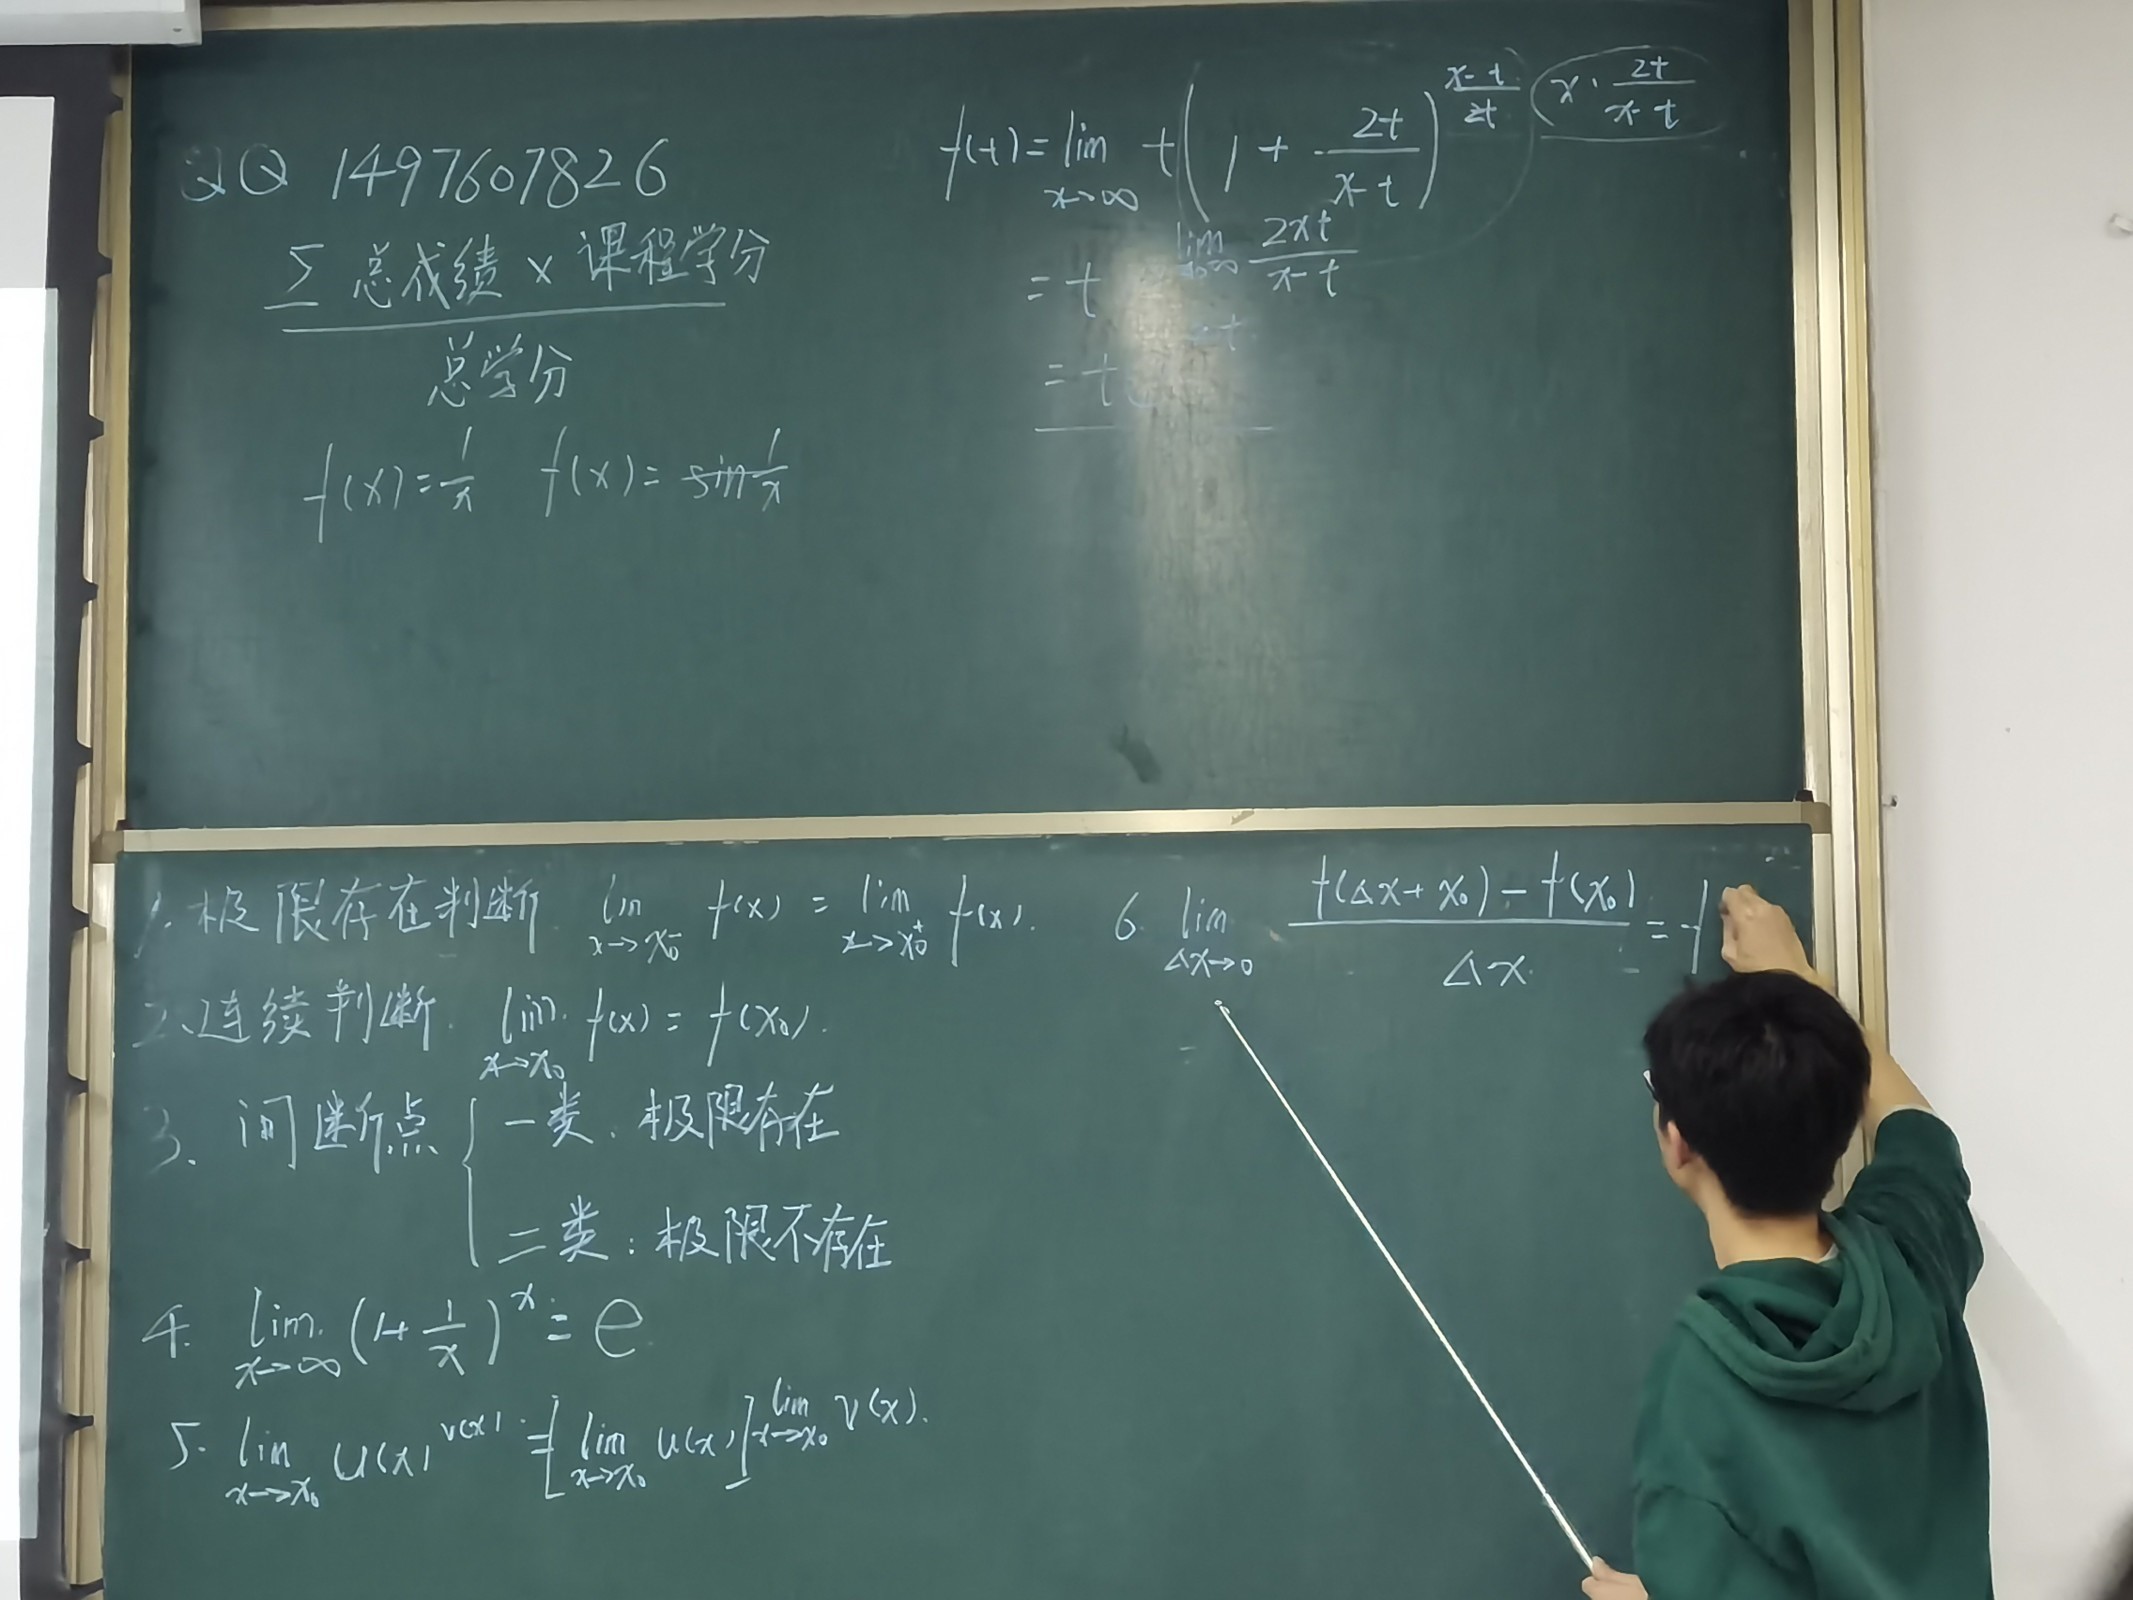 QQ 1497607826
∑ 总成绩 × 课程学分
总学分
f(x)=1/x f(x)=sin 1/x
f(t)=lim x→∞ t(1+2t/(x-t))^((x-t)/2t · x·2t/(x-t))
=t lim x→∞ 2xt/(x-t)
=t 2t
1.极限存在判断 lim x→x₀⁻ f(x) = lim x→x₀⁺ f(x).
2、连续判断. lim x→x₀ f(x) = f(x₀).
3、间断点 { 一类、极限存在
二类:极限不存在
4. lim x→∞ (1+1/x)^x = e
5. lim x→x₀ u(x)^v(x) = [lim x→x₀ u(x)]^lim x→x₀ v(x).
6. lim Δx→0 (f(Δx+x₀)-f(x₀))/Δx = f